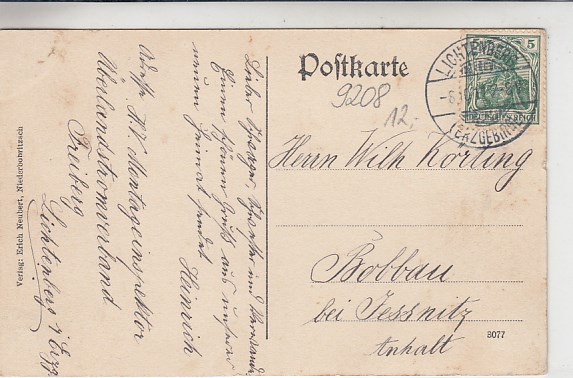 Postkarte
9208
12.-
LICHTENBERG
(ERZGEBIRGE)
5
DEUTSCHES REICH
Herrn Wilh Korting
Bobbau
bei Jessnitz
Anhalt
8077
Lieber Schwager, Schwester und Verwandte
Einen schönen Gruß aus unserer
neuen Heimat sendet
Heinrich
Adresse H. K. Montageinspektor
Überlandstromverband
Freiberg
Lichtenberg i/Erzg.
Verlag: Erich Neubert, Niederbobritzsch